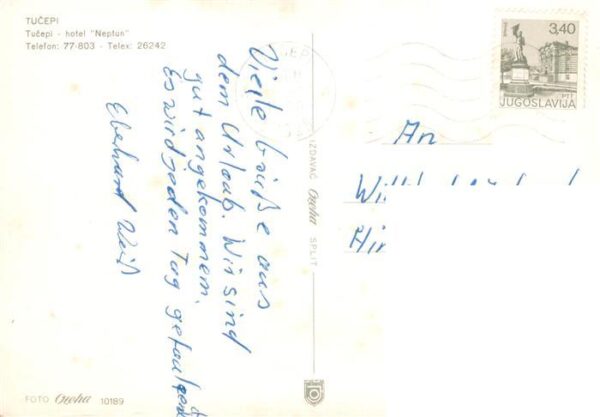 TUČEPI
Tučepi - hotel "Neptun"
Telefon: 77-803 - Telex: 26242
Viele Grüße aus
dem Urlaub. Wir sind
gut angekommen.
Es wird jeden Tag gefaulenzt
Eberhard Weiß
IZDAVAČ SPLIT
3,40
PTT
JUGOSLAVIJA
An
FOTO 10189